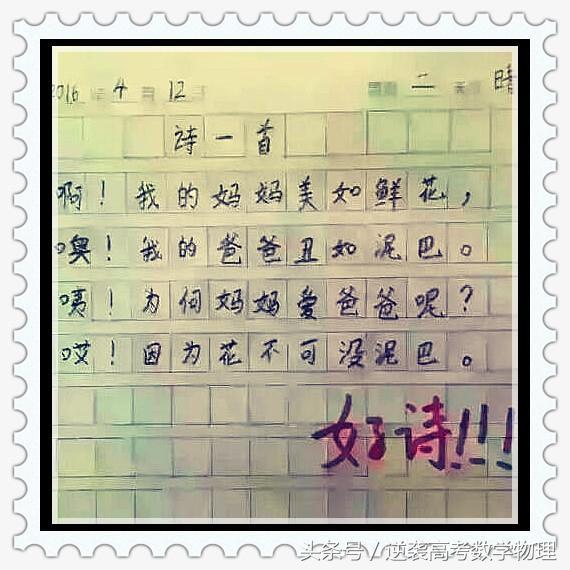 2016 4 12 二 晴
诗一首
啊！我的妈妈美如鲜花，
噢！我的爸爸丑如泥巴。
咦！为何妈妈爱爸爸呢？
哎！因为花不可没泥巴。
好诗!!!
头条号/逆袭高考数学物理